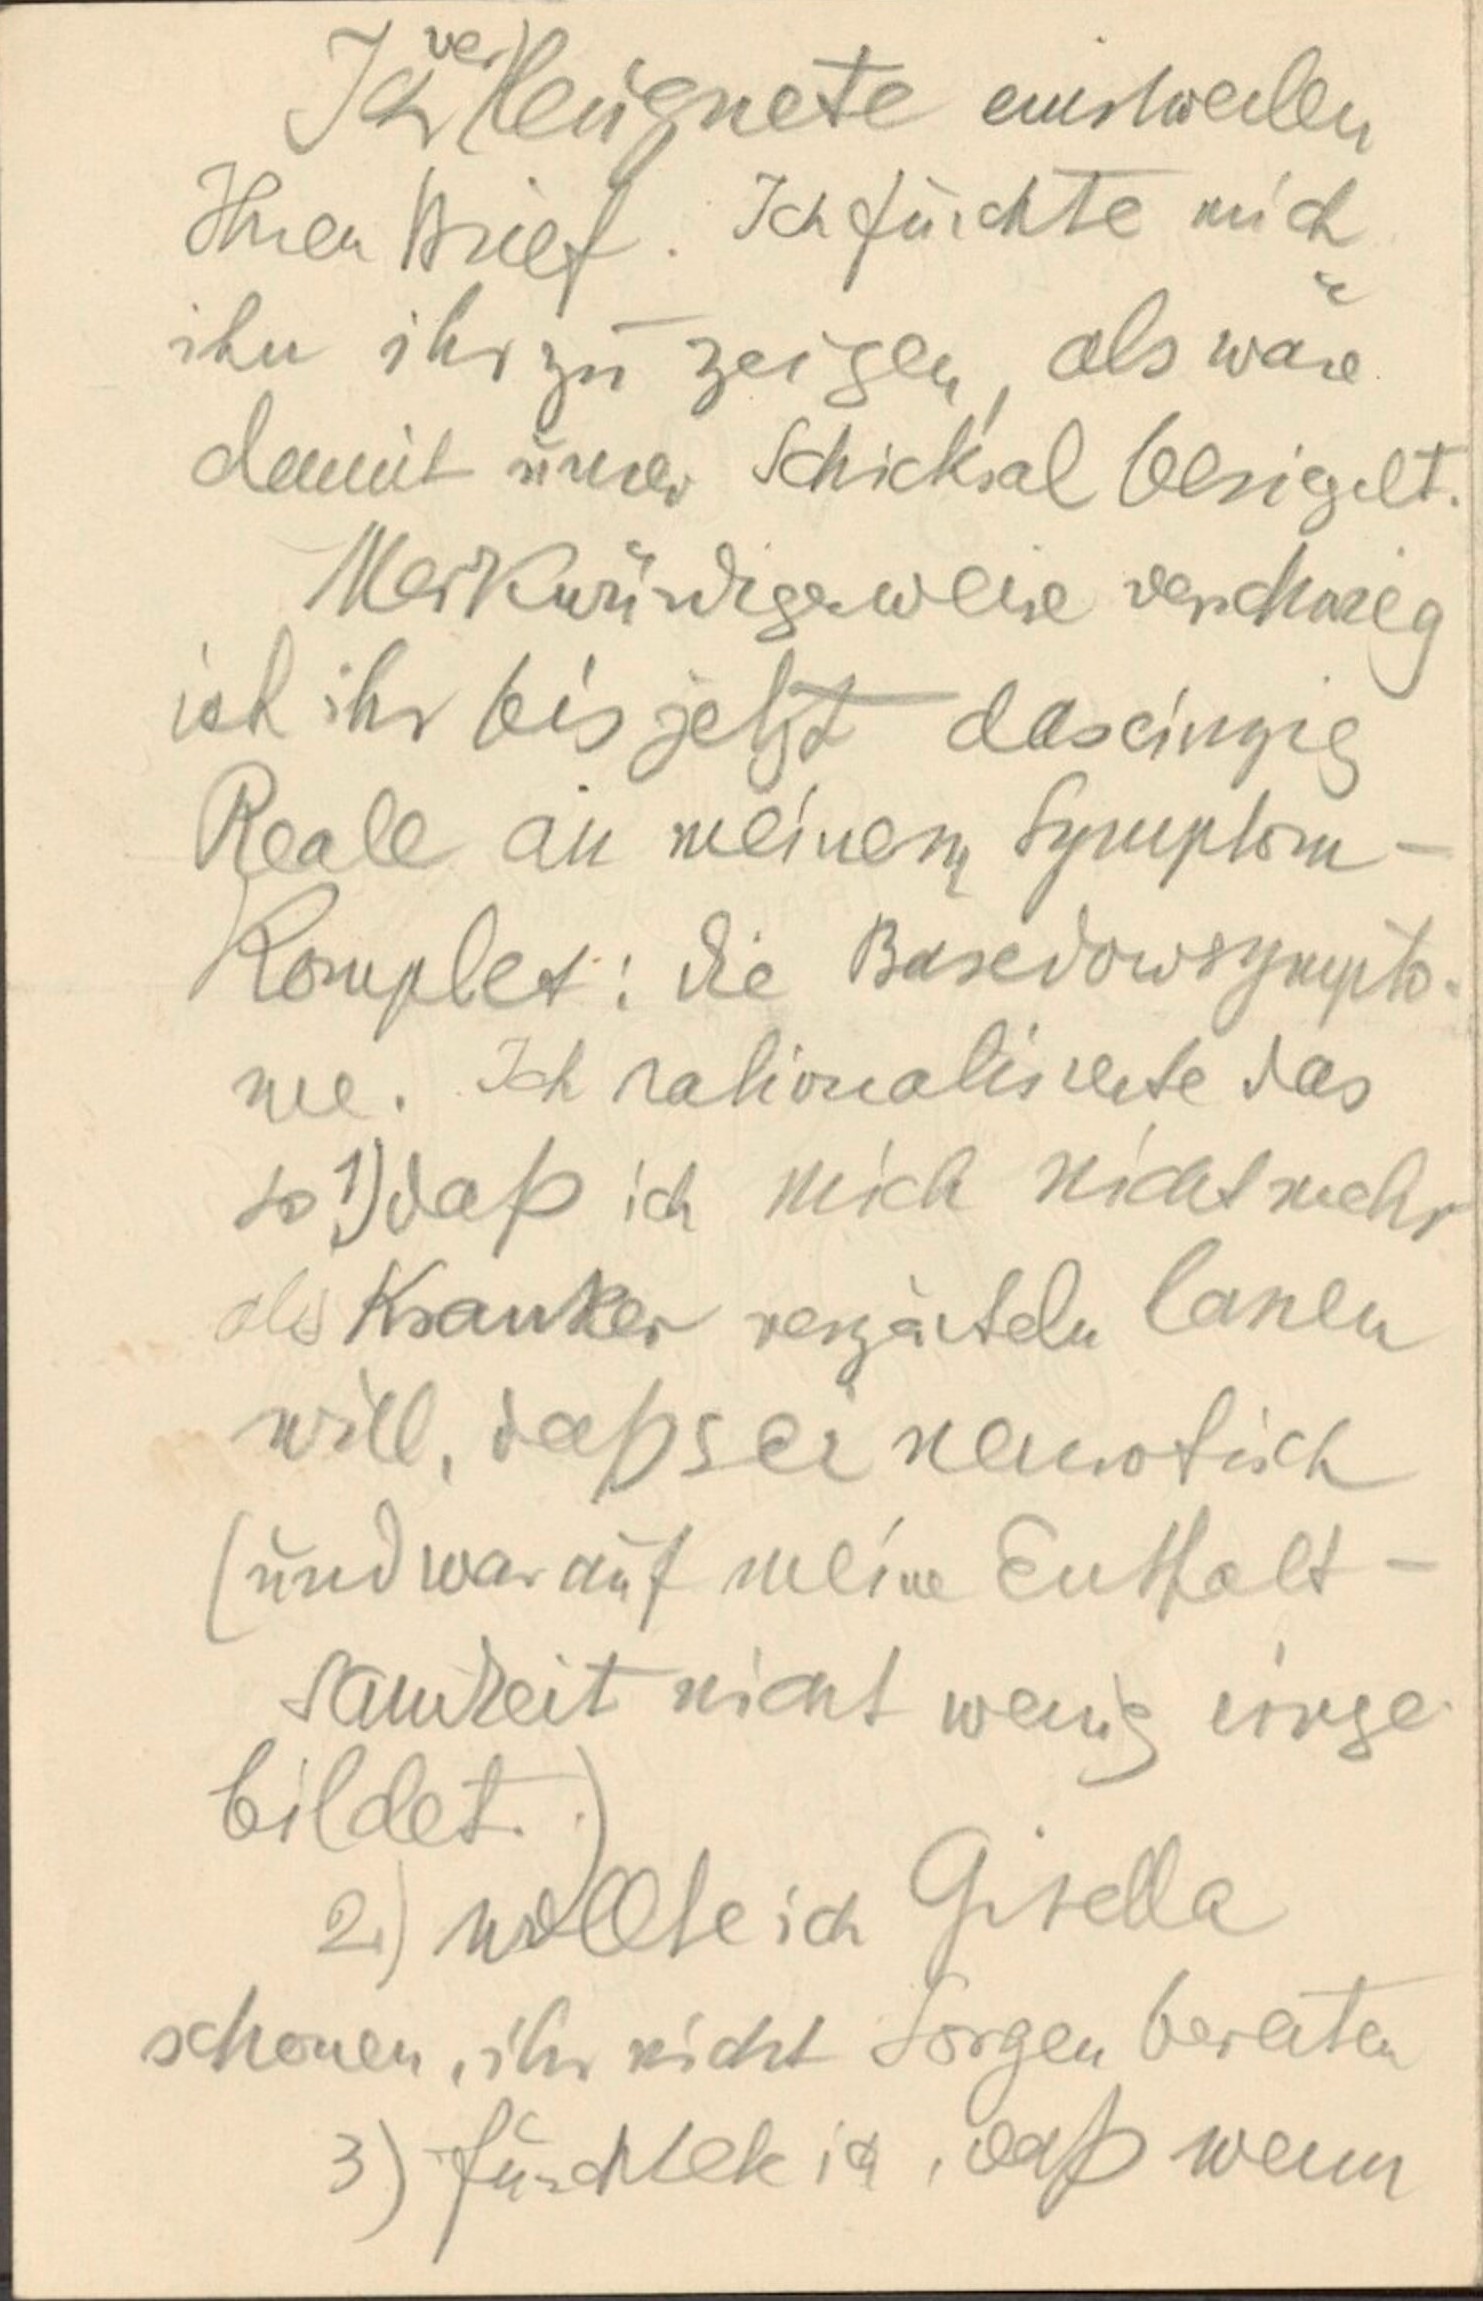 Ich verleugnete einstweilen
Ihren Brief. Ich fürchte mich
ihn ihr zu zeigen, als wäre
damit unser Schicksal besiegelt.
Merkwürdigerweise verschwieg
ich ihr bis jetzt das einzig
Reale an meinem Symptom-
Komplex: die Basedowsympto-
me. Ich rationalisierte das
so 1) daß ich mich nicht mehr
als Kranker verzärteln lassen
will, daß sei neurotisch
(und war auf meine Enthalt-
samkeit nicht wenig einge
bildet.)
2) wollte ich Gisella
schonen, ihr nicht Sorgen bereiten
3) fürchtete ich, daß wenn